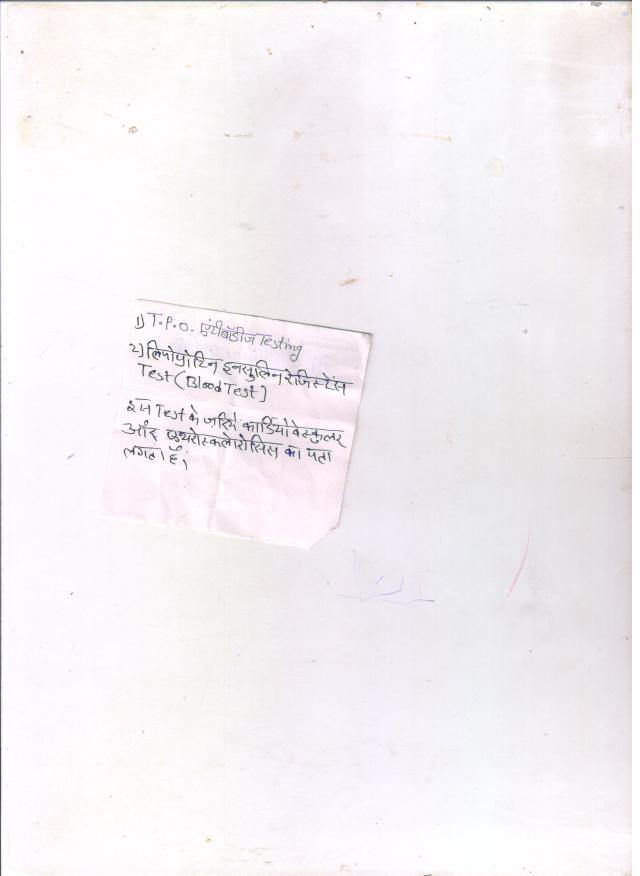 1) T.P.O. एंटीबॉडीज Testing
2) लिपोप्रोटिन इनसुलिन रेजिस्टेंस
Test (Blood Test]
इस Test के जरिये कार्डियोवेस्कुलर
और एथरोस्कलारोसिस का पता
लगता है।